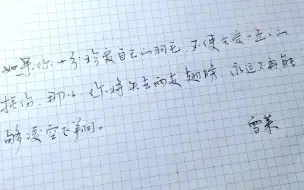 如果你一味珍爱自己的羽毛，不使它受一点的
损伤，那么你将失去两支翅膀，永远不再能
够凌空飞翔。
雪莱